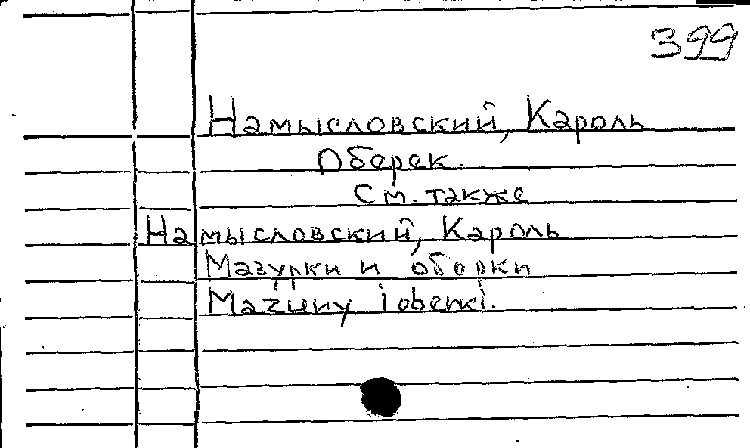 399
Намысловский, Кароль
Оберек.
См. также
Намысловский, Кароль
Мазурки и оберки
Mazurky i oberki.